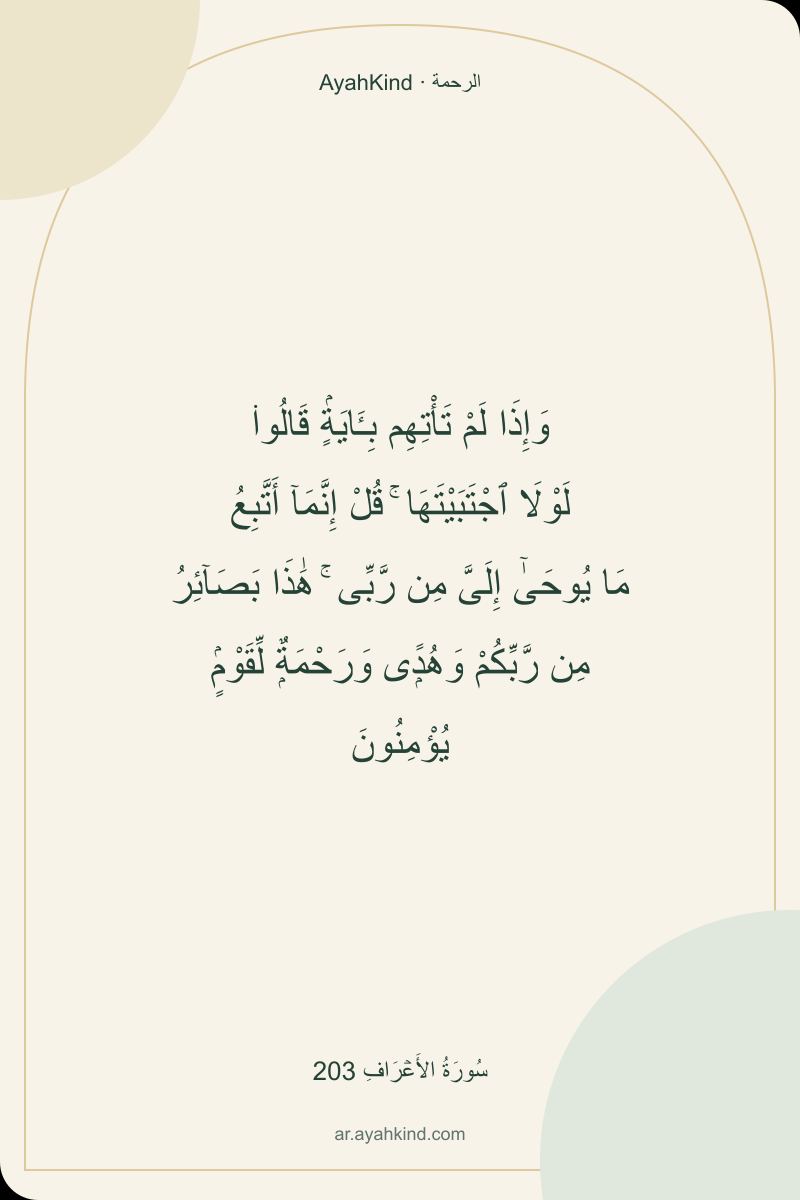 AyahKind · الرحمة
وَإِذَا لَمْ تَأْتِهِم بِـَٔايَةٍۢ قَالُوا۟
لَوْلَا ٱجْتَبَيْتَهَا ۚ قُلْ إِنَّمَآ أَتَّبِعُ
مَا يُوحَىٰٓ إِلَىَّ مِن رَّبِّى ۚ هَٰذَا بَصَآئِرُ
مِن رَّبِّكُمْ وَهُدًۭى وَرَحْمَةٌۭ لِّقَوْمٍۢ
يُؤْمِنُونَ
سُورَةُ الأَعۡرَافِ 203
ar.ayahkind.com